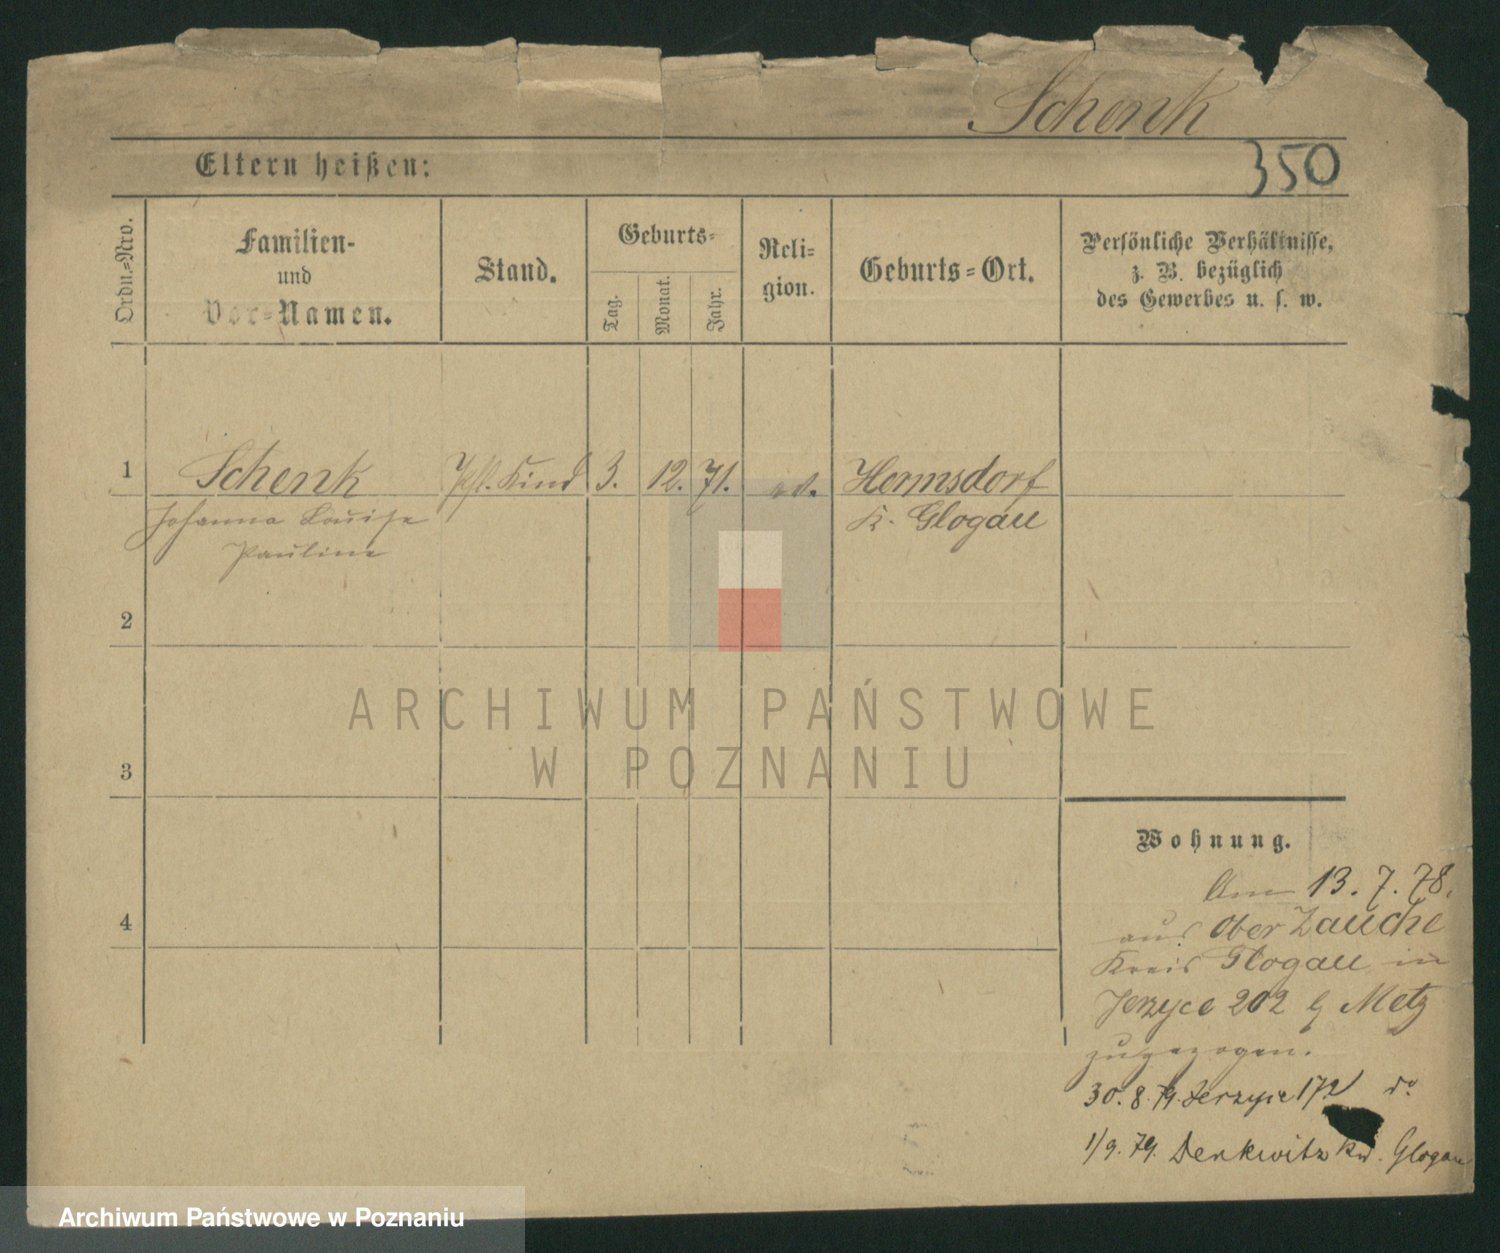 Schenk
Eltern heißen:
350
Ordn.=Nro.
Familien-
und
Vor=Namen.
Stand.
Geburts=
Tag.
Monat.
Jahr.
Reli=
gion.
Geburts=Ort.
Persönliche Verhältnisse,
z. B. bezüglich
des Gewerbes u. s. w.
1
Schenk
Pfl. Kind
3.
12.
71.
ev.
Hermsdorf
Johanna Louise
K. Glogau
Pauline
2
3
4
Wohnung.
Am 13. 7. 78.
aus Ober Zauche
Kreis Glogau in
Jerzyce 202 b Metz
zugezogen.
30. 8. 79. Jerzyce 172 do
1/9. 79. Denkwitz Kr. Glogau
ARCHIWUM PAŃSTWOWE
W POZNANIU
Archiwum Państwowe w Poznaniu